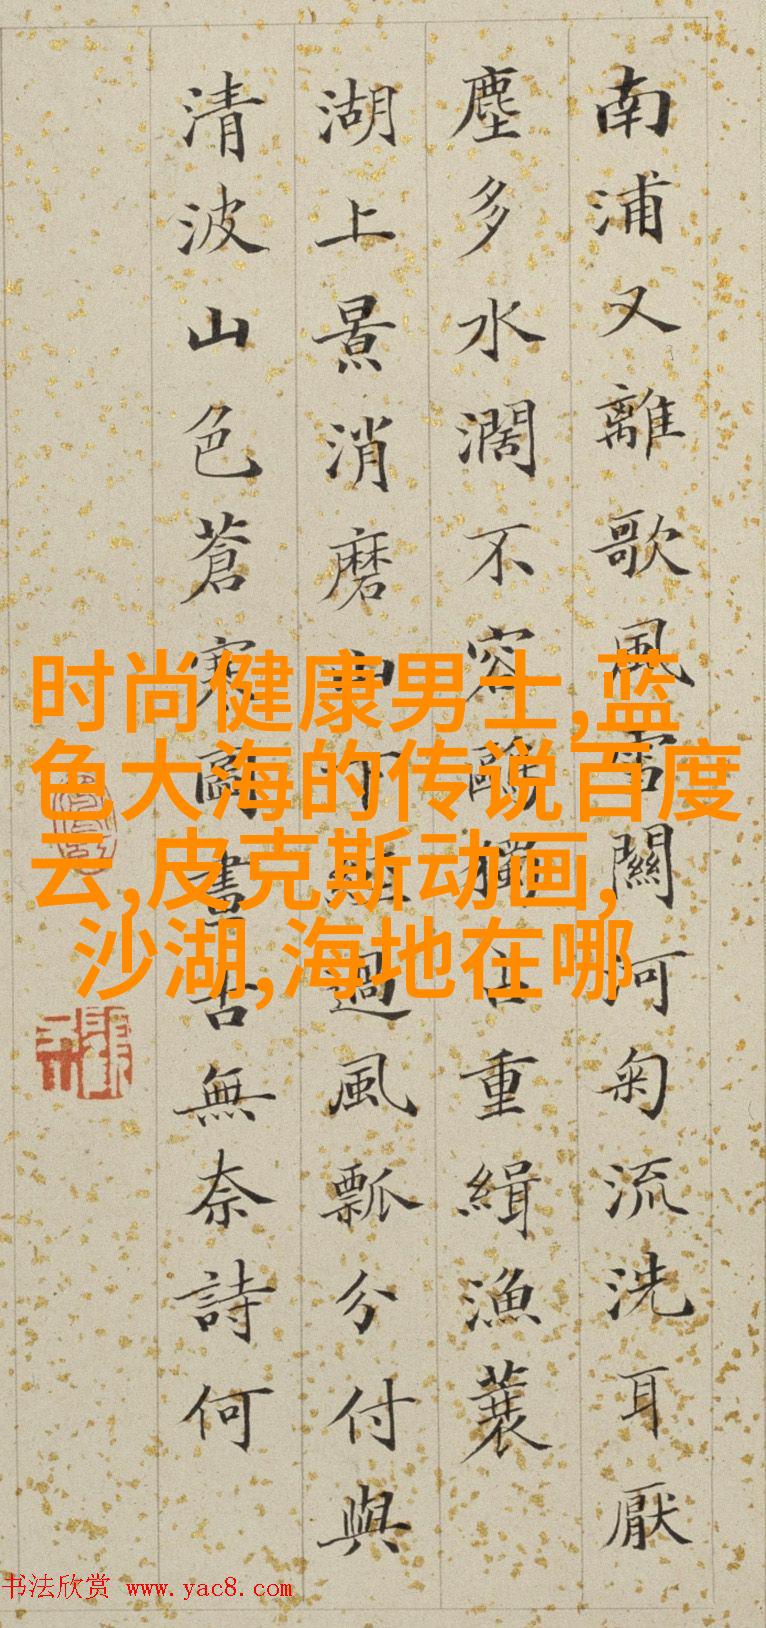 南浦又離歌風關河匊流洗耳厭
塵多水濶不容鷗獨占重緝漁蓑
湖上景消磨過風瓢分付與
清波山色蒼寒畫古無奈詩何
时尚健康男士,蓝
色大海的传说百度
云,皮克斯动画,
沙湖,海地在哪
书法欣赏 www.yac8.com